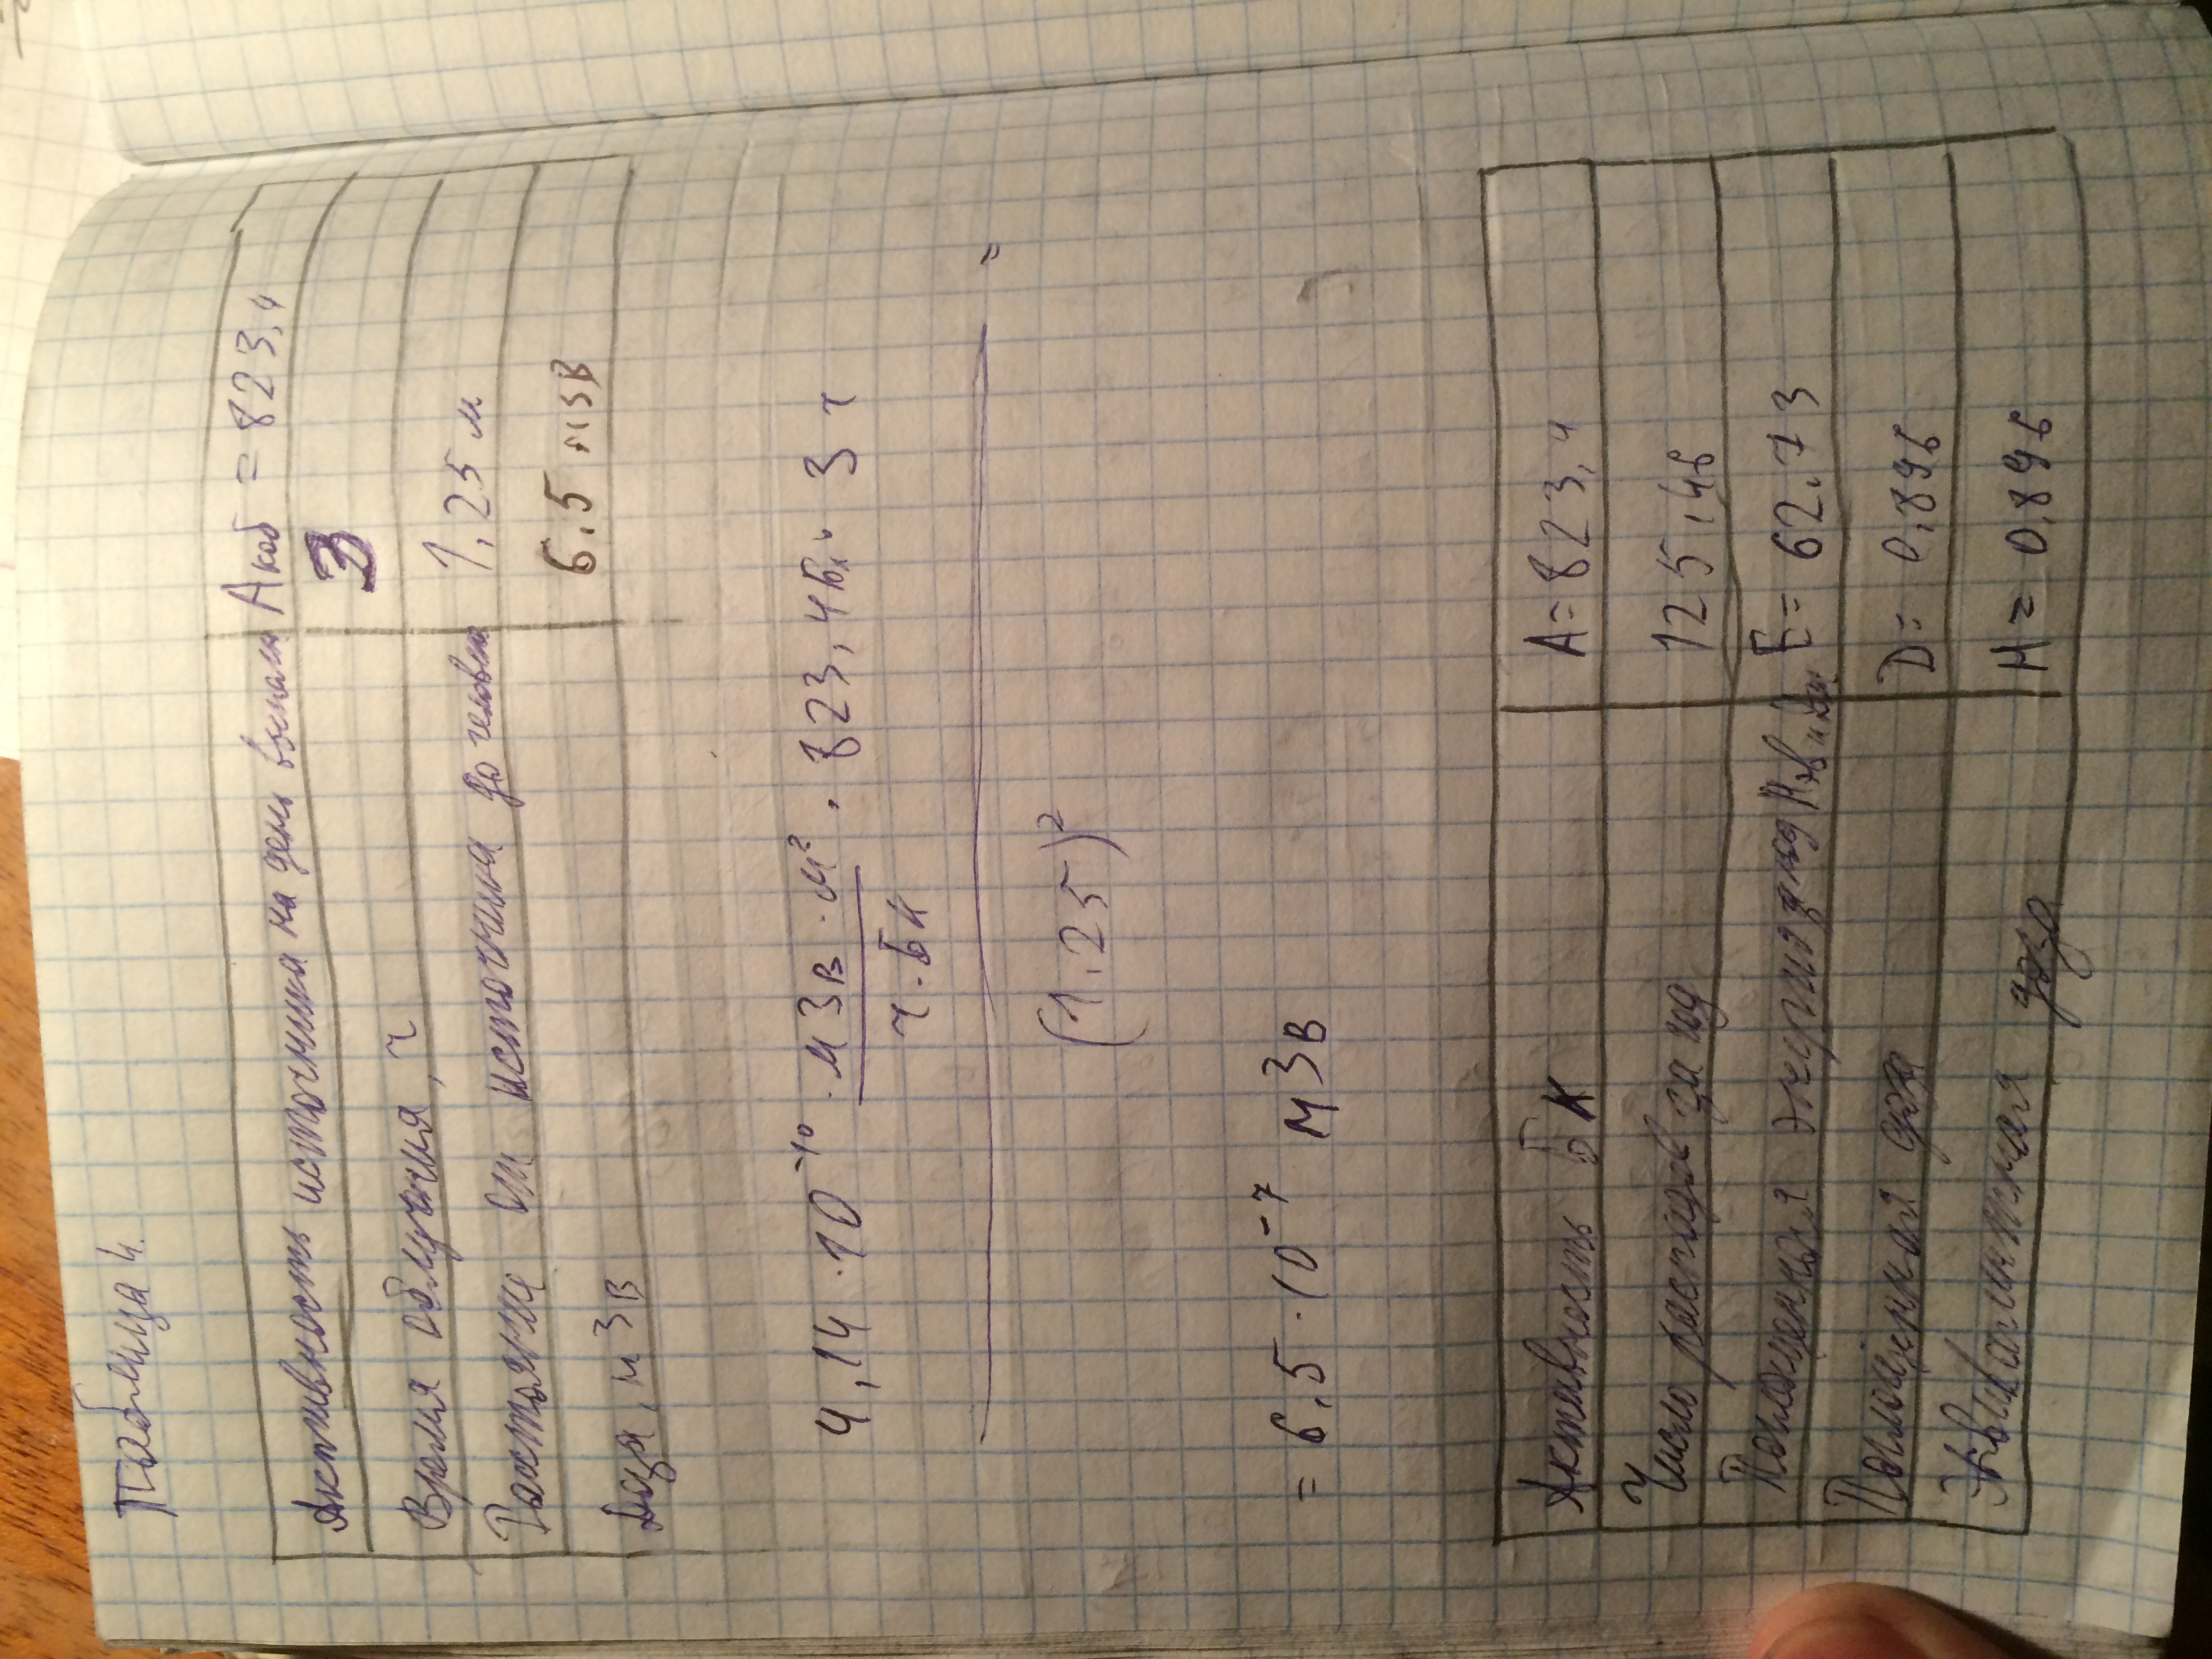 Таблица 4.
Активность источника на день выполн Aкоб = 823,4
Время облучения, ч 3
Расстояние от источника до человека 1,25 м
Доза, м3в 6,5 м3в
4,14 · 10⁻¹⁰ · м3в · м² · 823,4 Бк · 3 ч
ч · Бк
=
(1,25)²
= 6,5 · 10⁻⁷ м3в
Активность Бк A = 823,4
Число распадов за год 125,46
Поглощенная энергия за год Мэв и Дж E = 62,73
Поглощенная доза D = 0,896
Эквивалентная доза H = 0,896